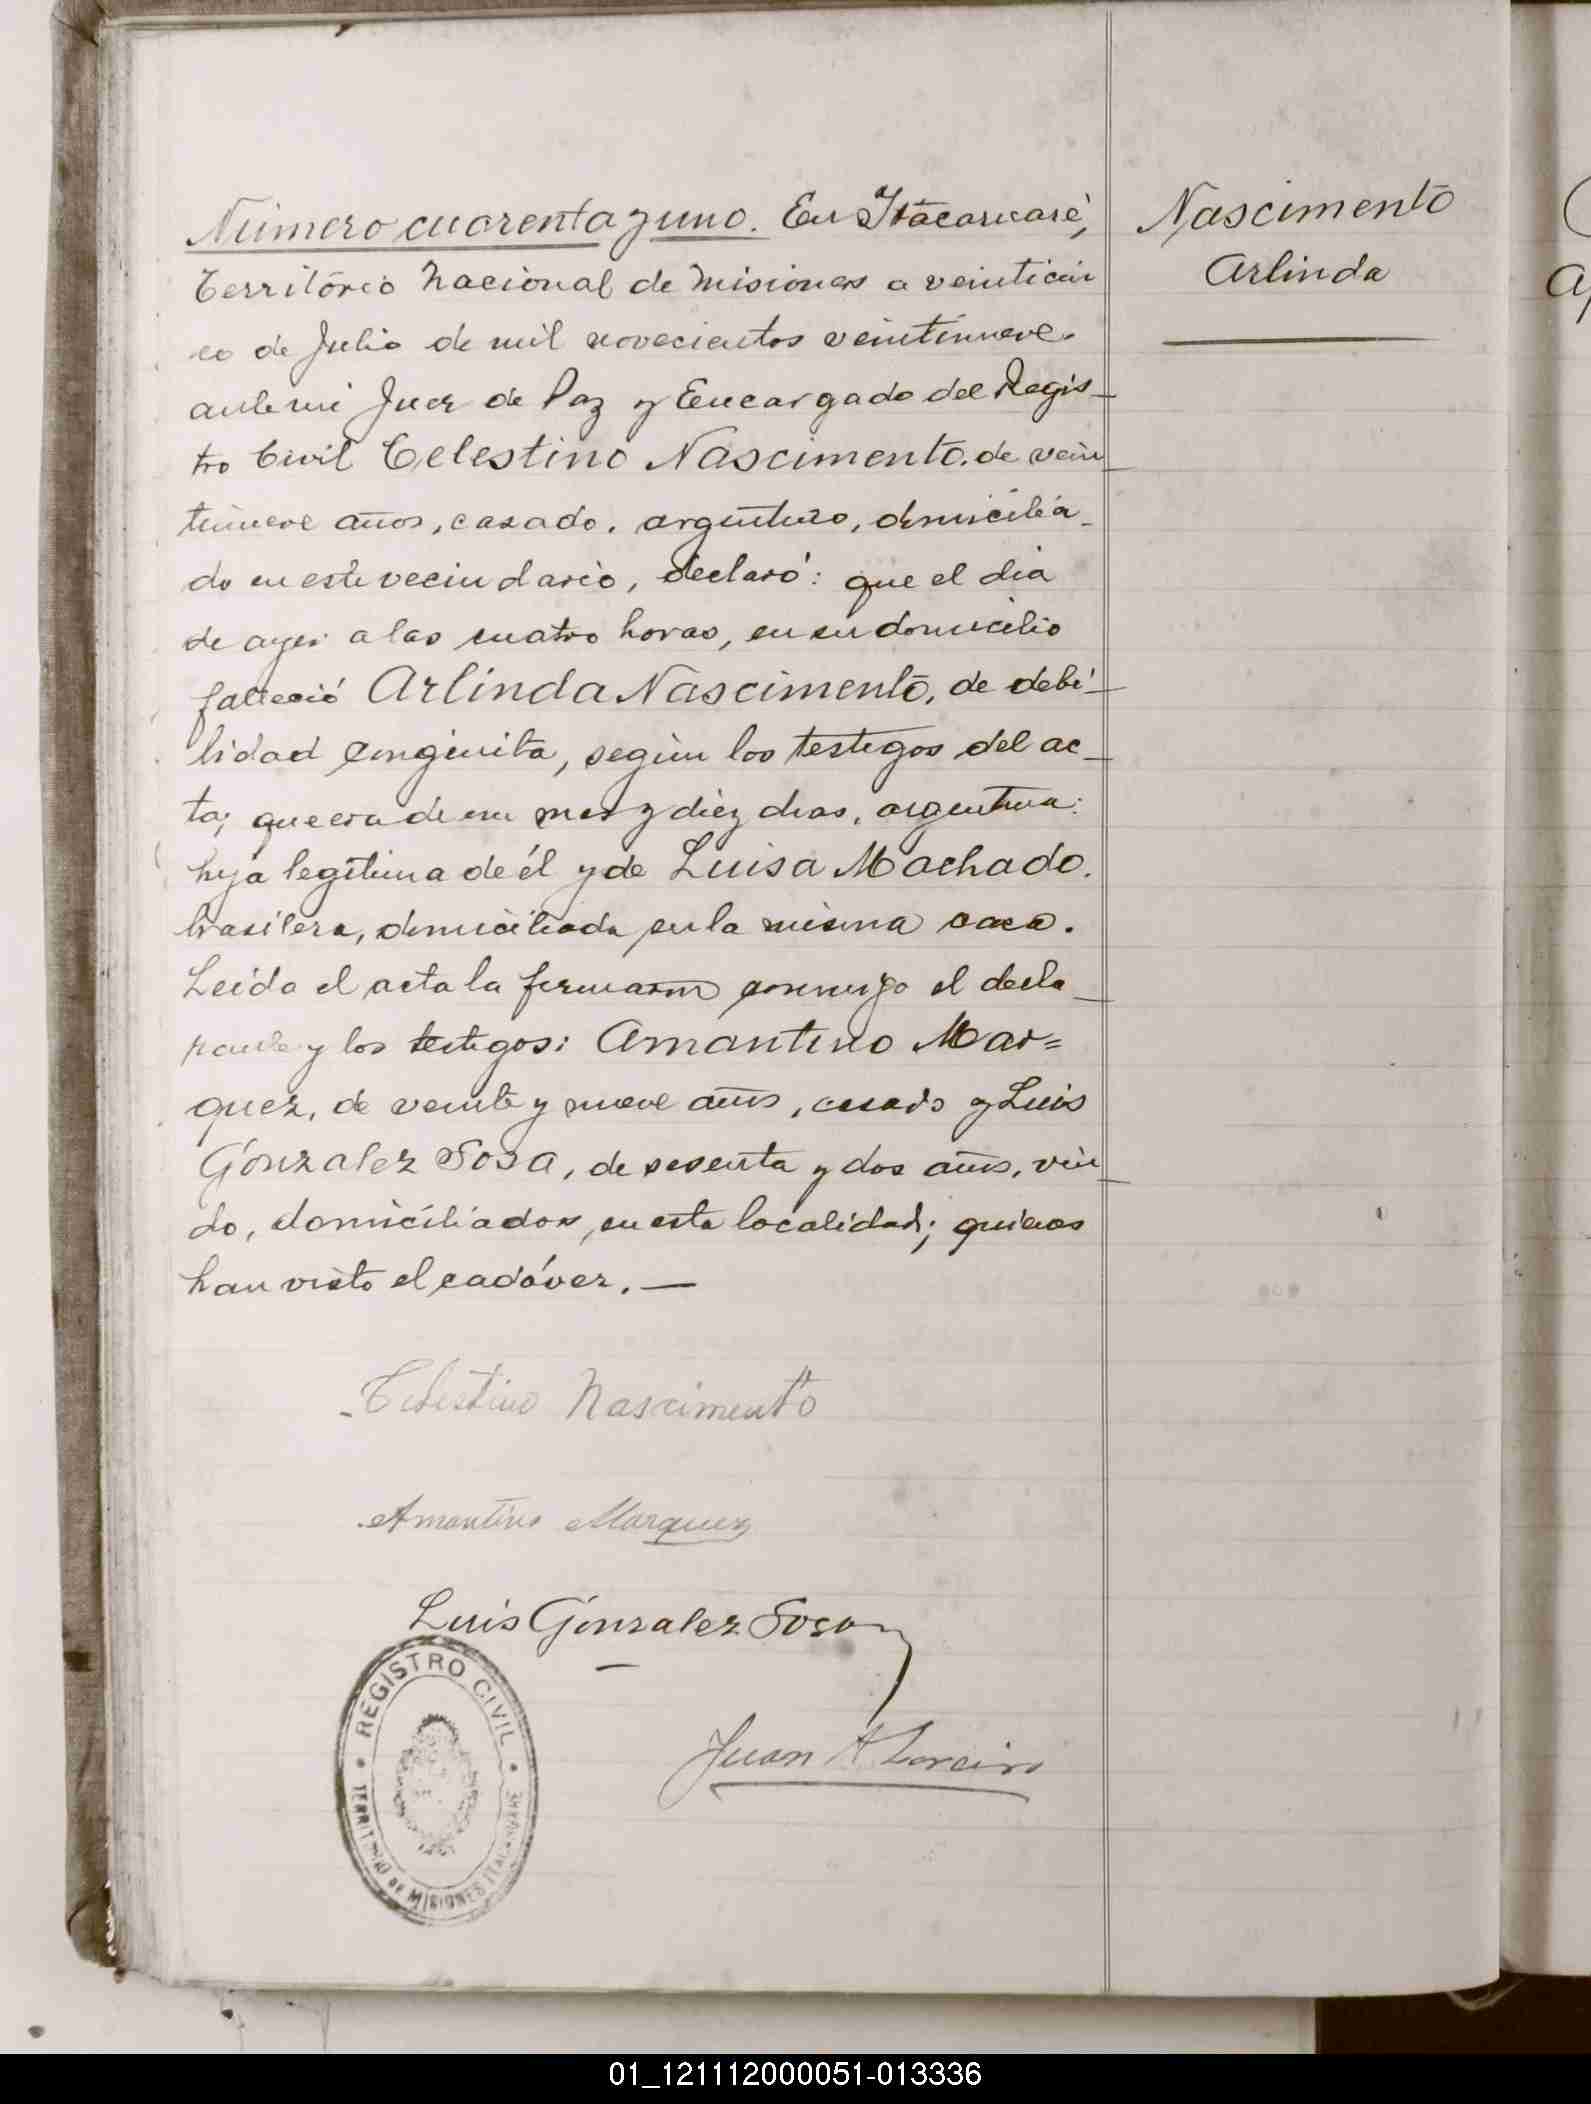 Número cuarenta y uno. En Itacaruaré,
Território Nacional de Misiones a veinticin
co de Julio de mil novecientos veintinueve.
ante mi Juez de Paz y Encargado del Regis-
tro Civil Celestino Nascimento. de vein
tinueve años, casado. argentino, domicilia-
do en este vecindario, declaró: que el dia
de ayer a las cuatro horas, en su domicilio
falleció Arlinda Nascimento, de debi-
lidad congénita, según los testigos del ac-
ta; que era de un mes y diez dias, argentina:
hija legítima de él y de Luisa Machado.
brasilera, domiciliada en la misma casa.
Leida el acta la firmaron conmigo el decla-
rante y los testigos: Amantino Mar=
quez, de veinte y nueve años, casado y Luis
Gonzalez Sosa, de sesenta y dos años, viu-
do, domiciliados en esta localidad; quienes
han visto el cadáver. —
Celestino Nascimento
Amantino Marquez
Luis Gonzalez Sosa
Juan A
REGISTRO CIVIL
TERRITORIO DE MISIONES ITACARUARE
Nascimento
Arlinda
01_121112000051-013336